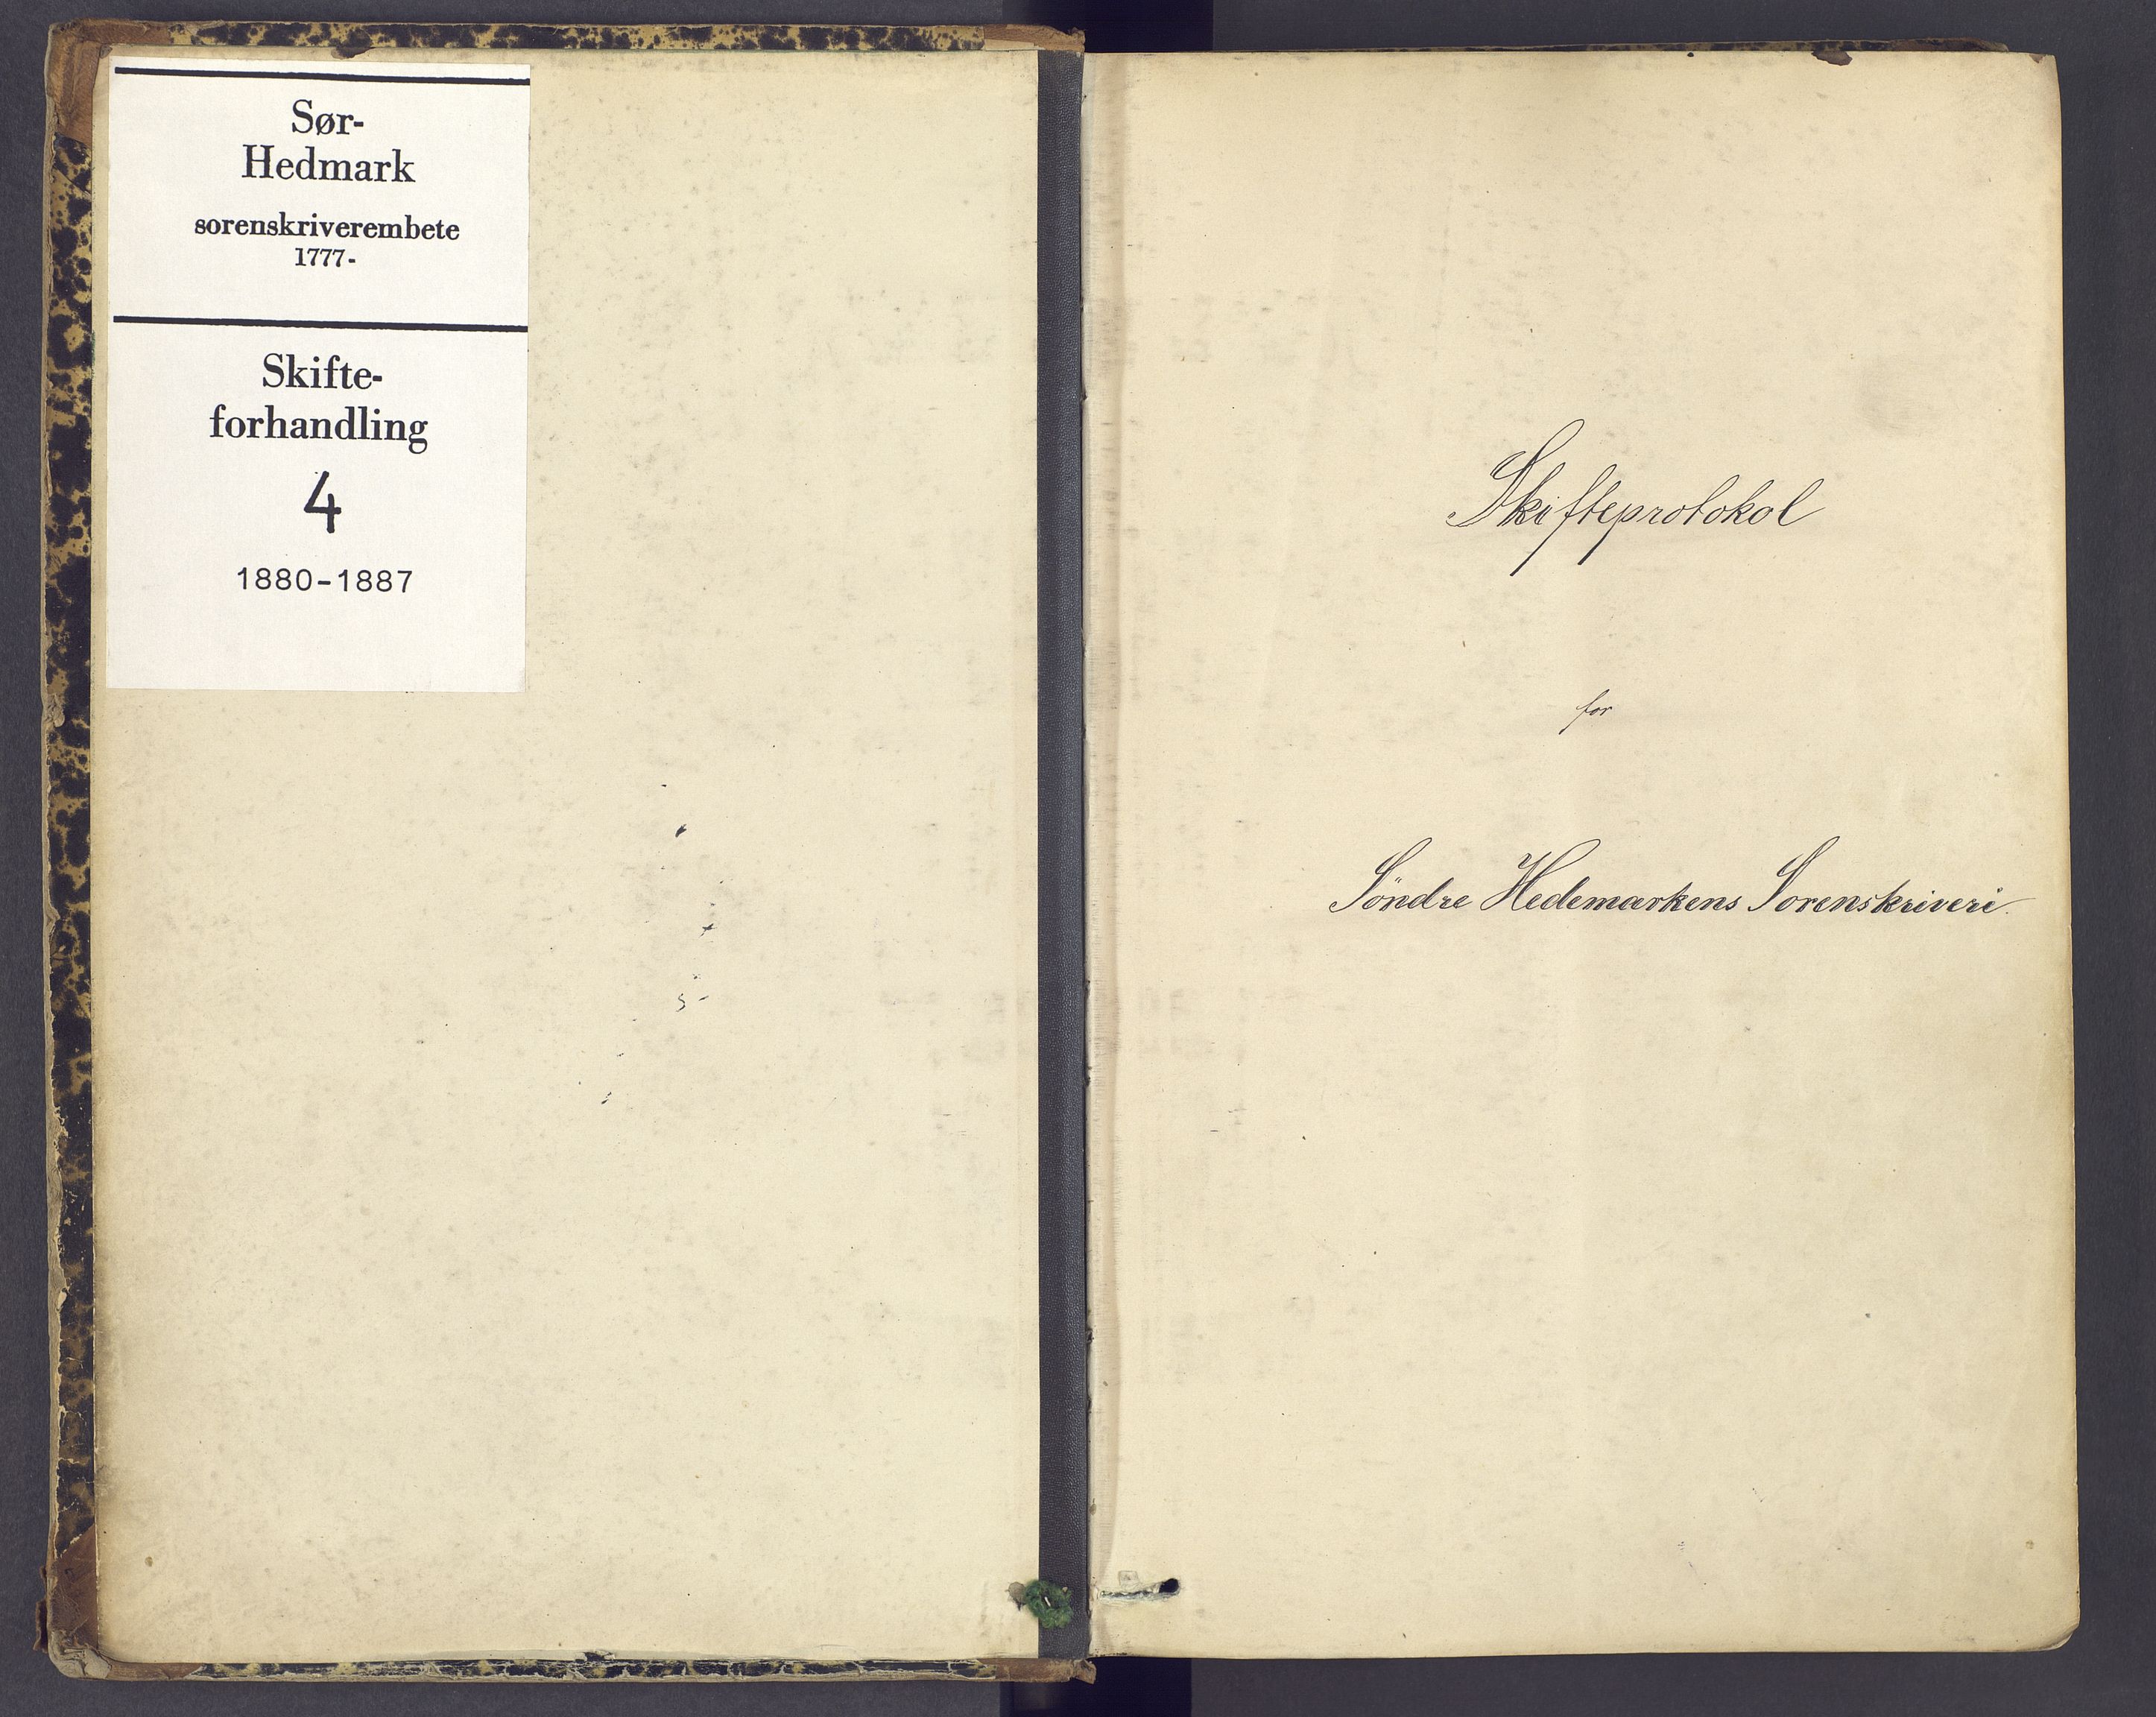 Sør-
Hedmark
sorenskriverembete
1777-
Skifte-
forhandling
4
1880-1887
Skifteprotokol
for
Söndre Hedemarkens Sorenskriveri.